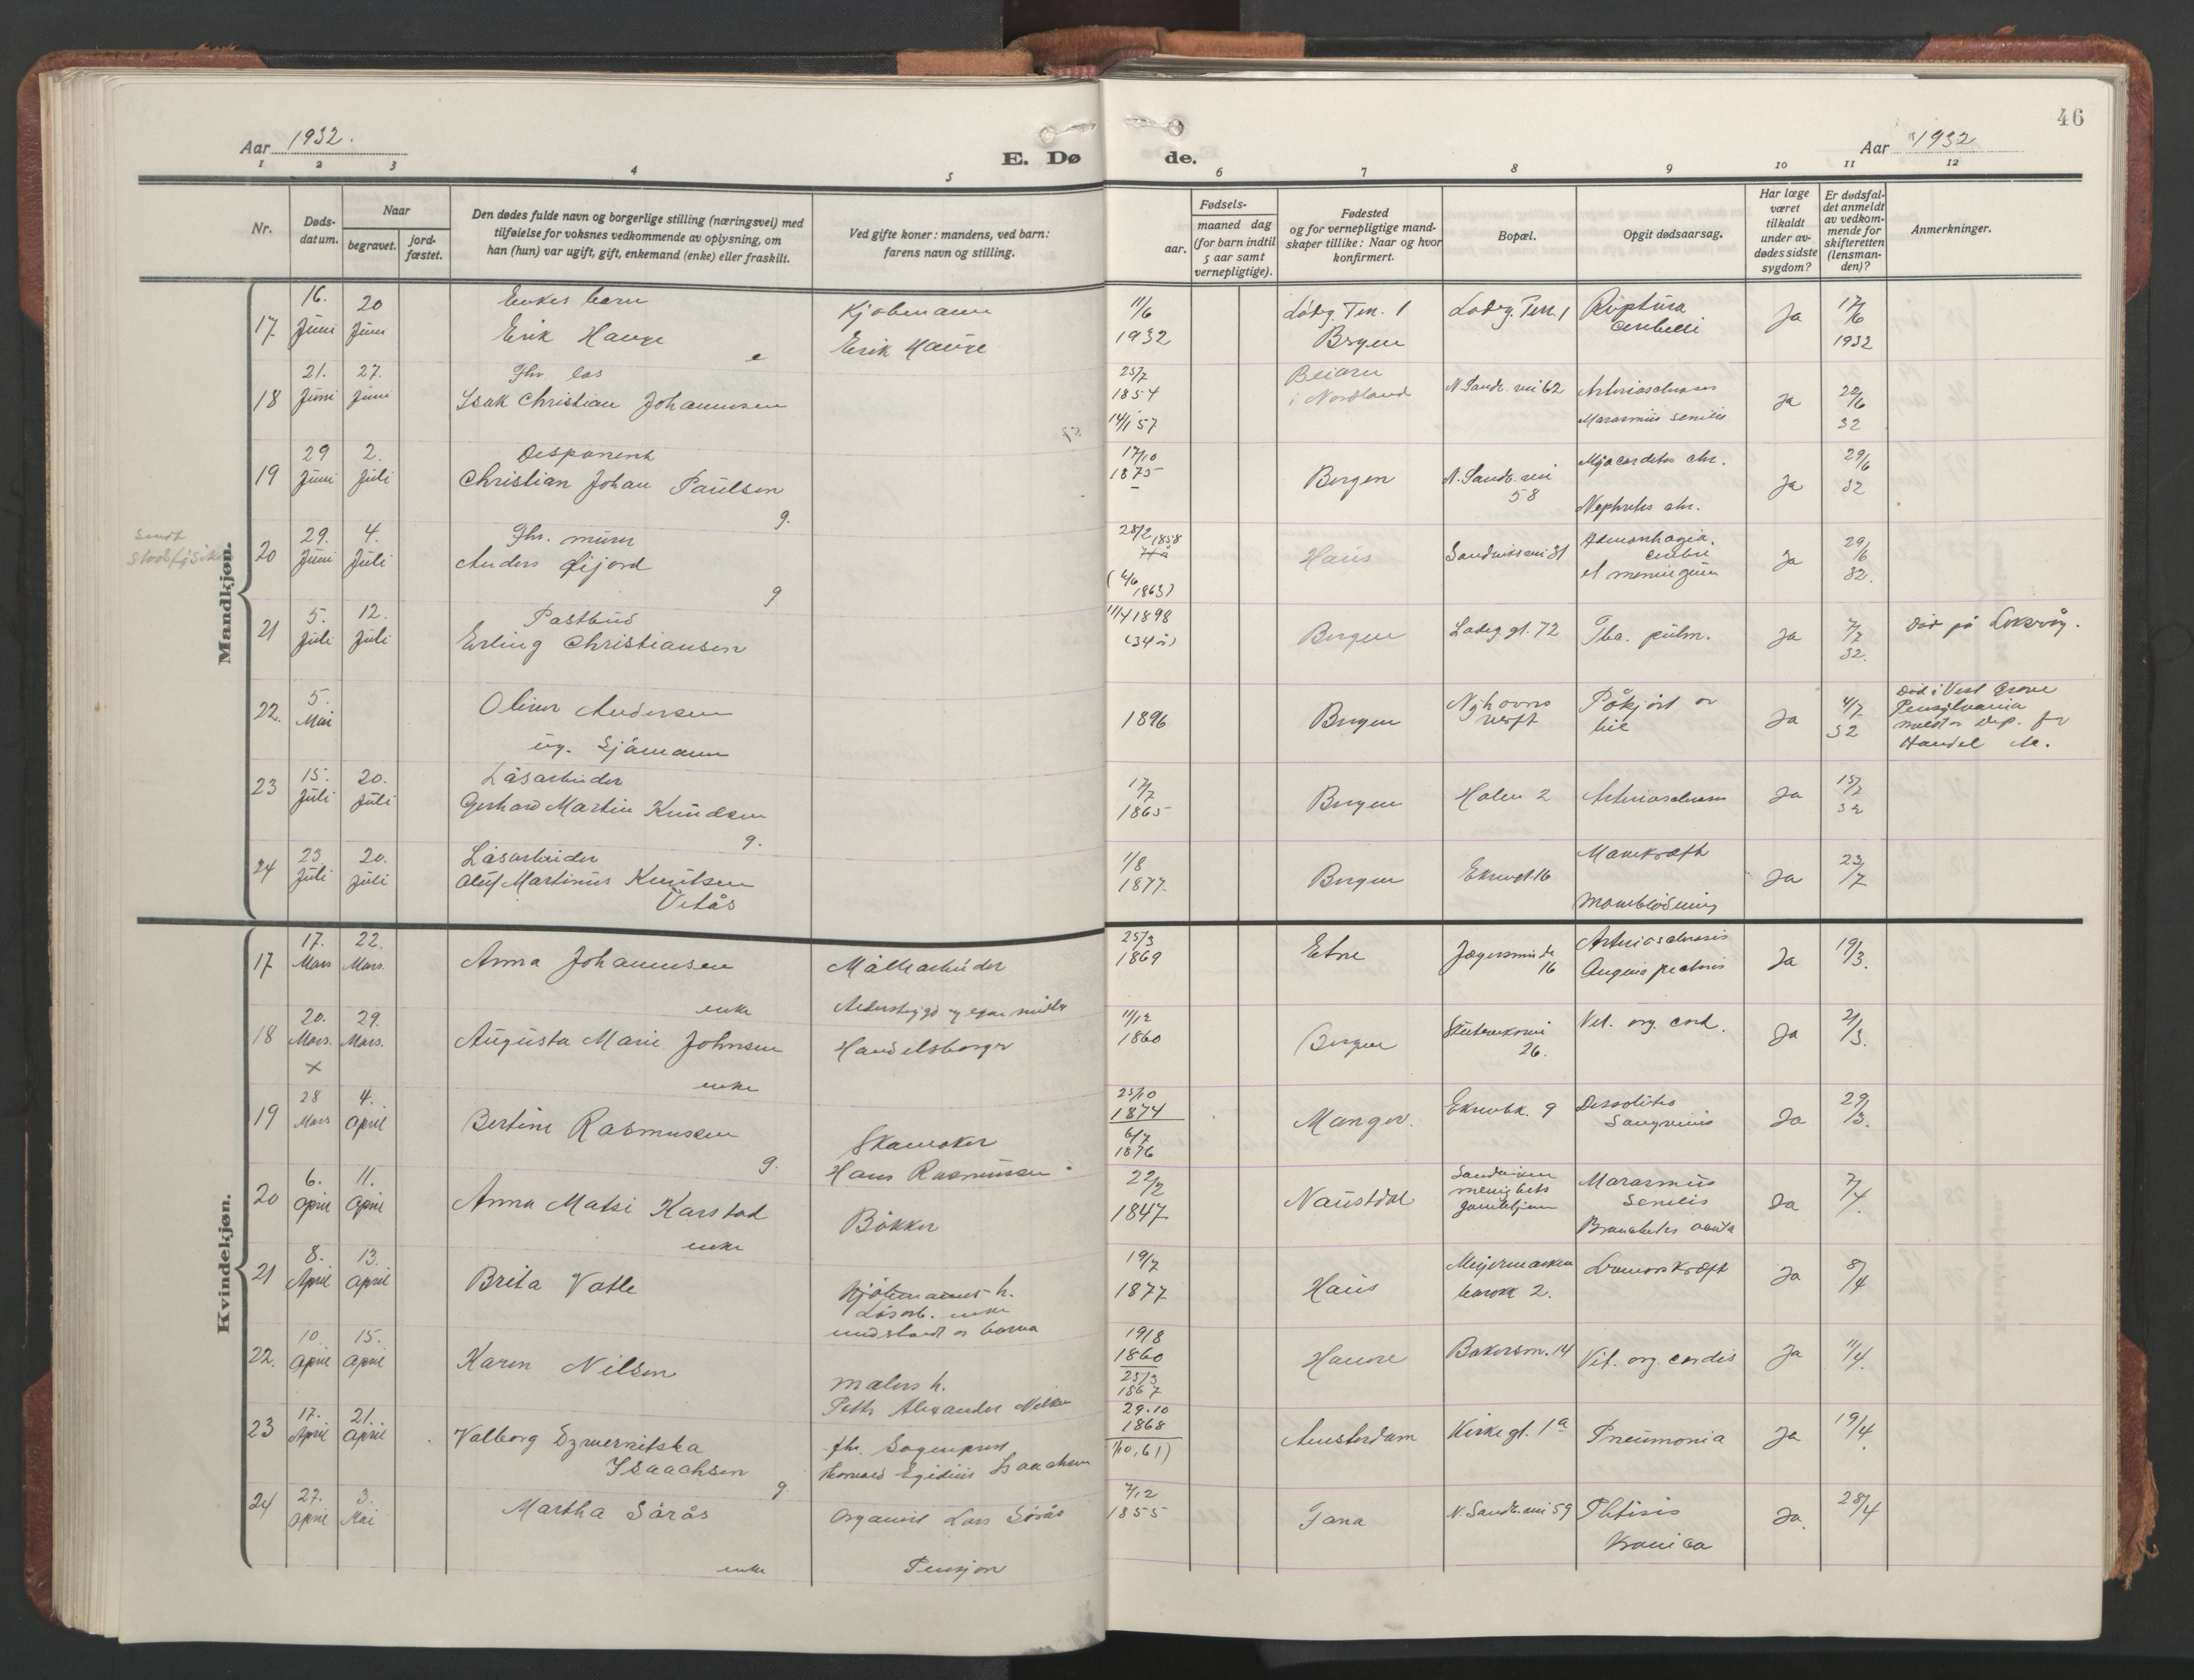 46
Aar 1932.
E. Døde.
Aar 1932
1 2 3 4 5 6 7 8 9 10 11 12
Nr.
Døds-
datum.
Naar
begravet.
jord-
fæstet.
Den dødes fulde navn og borgerlige stilling (næringsvei) med
tilføielse for voksnes vedkommende av oplysning, om
han (hun) var ugift, gift, enkemand (enke) eller fraskilt.
Ved gifte koner: mandens, ved barn:
farens navn og stilling.
Fødsels-
aar.
maaned dag
(for barn indtil
5 aar samt
vernepligtige).
Fødested
og for vernepligtige mand-
skaper tillike: Naar og hvor
konfirmert.
Bopæl.
Opgit dødsaarsag.
Har læge
været
tilkaldt
under av-
dødes sidste
sygdom?
Er dødsfal-
det anmeldt
av vedkom-
mende for
skifteretten
(lensman-
den)?
Anmerkninger.
Mandkjøn.
17 16. Juni 20 Juni
Erik Hauge
Erik Hauge
11/6 1932
Ladeg. Terr. 1
Bergen
Ladeg. Terr. 1
Ruptura cerebelli
Ja
17/6 1932
18 21. Juni 27. Juni
Fhv. los
Isak Christian Johannesen
25/7 1854
14/1 57
Beiarn
i Nordland
N. Sandv. vei 62
Arteriosclerosis
Marasmus senilis
Ja
22/6 32
19 29 Juni 2. Juli
Disponent
Christian Johan Paulsen
g.
17/10 1875
Bergen
N. Sandv. vei 58
Myocarditis chr.
Nephritis chr.
Ja
29/6 32
sendt
20 29. Juni 4. Juli
Fhv. murer
Anders Øijord
g
28/2 1858
(6/6 1863)
Haus
Sandviksvei 81
Haemorrhagia
cerebri
et meningum
Ja
29/6 32.
21 5. Juli 12. Juli
Postbud
Erling Christiansen
11/4 1898
(34 år)
Bergen
Ladeg gt. 72
Tbc. pulm.
Ja
7/7 32.
Død på Luksvåg.
22. 5. Mai
Oliver Andersen
ug. Sjømann
1896
Bergen
Nyhavns
verft
Påkjørt av
bil
Ja
4/7 32
Død i Vest Grove
Pensylvania
meldt av Dep. for
Handel
23 15. Juli 20. Juli
Løsarbeider
Gerhard Martin Knudsen
g.
17/7 1865
Bergen
Holen 2
Arteriosclerosis
Ja
15/7 32
24 23. Juli 20. Juli
Løsarbeider
Oluf Martinus Knutsen
Vetås
1/8 1877.
Bergen
Ekregt. 16
Mavekræft
Maveblødning
Ja
23/7
Kvindekjøn.
17 17. Mars 22. Mars.
Anna Johannesen
enke
25/3 1869
Etne
Jægersminde 16
Arteriosclerosis
Angina pectoris
Ja
19/3.
18 20. Mars. 29. Mars.
x
Augusta Marie Johnsen
enke
Handelsborger
11/12 1860
Bergen
26.
Vit. org. cord.
Ja
21/3.
19 28 Mars 4. April
Bertine Rasmussen
g.
Skomaker
Hans Rasmussen
25/10 1874
6/7 1876
Manger.
Ekrebk. 9
Ja
29/3.
20 6. April 11. April
Anna Matsi Karstad
enke
Bøkker
22/2 1847
Naustdal
Sandviken
menighets
gamlehjem
Marasmus
senilis
Bronchitis acuta
Ja
7/4.
21 8. April 13. April
Brita Vatle
Løsarb. enke
understøtt. av barna
19/7 1877
Haus
Meyermarken
barakk 2.
Livmorskræft
Ja
8/4
22. 10. April 15. April
Karen Nilsen
Malers h.
Peter Alexander Nilsen
19/8 1860
25/3 1867
Bakersm. 14
Vit. org. cordis
Ja
11/4.
23 17. April 21. April
Valborg Ezmernitska
Isaachsen
g
fhv. Sogneprest
Egidius Isaachsen
29.10 1868
Amsterdam
Kirkegt. 1a
Pneumonia
Ja
19/4.
24 27. April 3. Mai
Martha Sørås
enke
Organist Lars Sørås
Pensjon
7/12 1855
Fana
N. Sandv. vei 59
Phtisis
kronica
Ja.
28/4